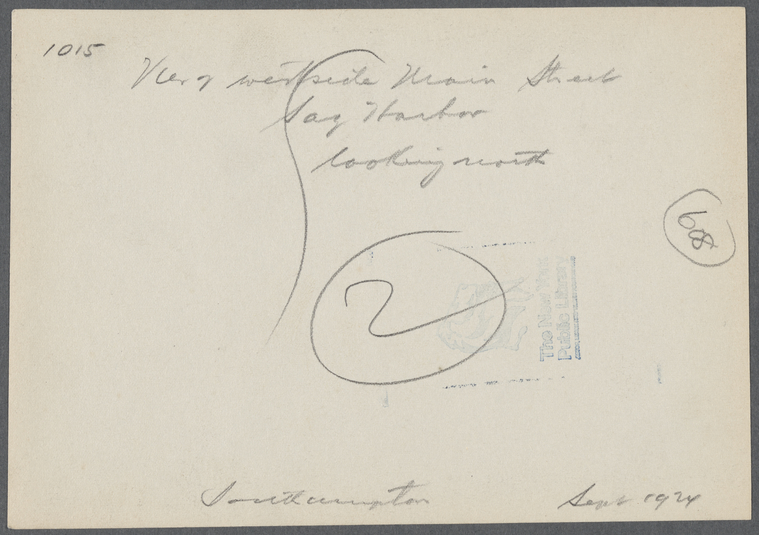 1015
View westside Main Street
Sag Harbor
looking north
68
2
The New York
Public Library
Southampton
Sept 1924